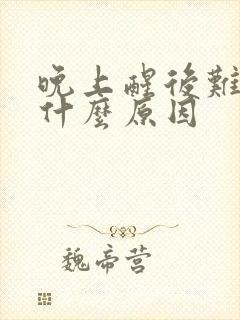 晚上醒後難
什麼原因
魏帝营